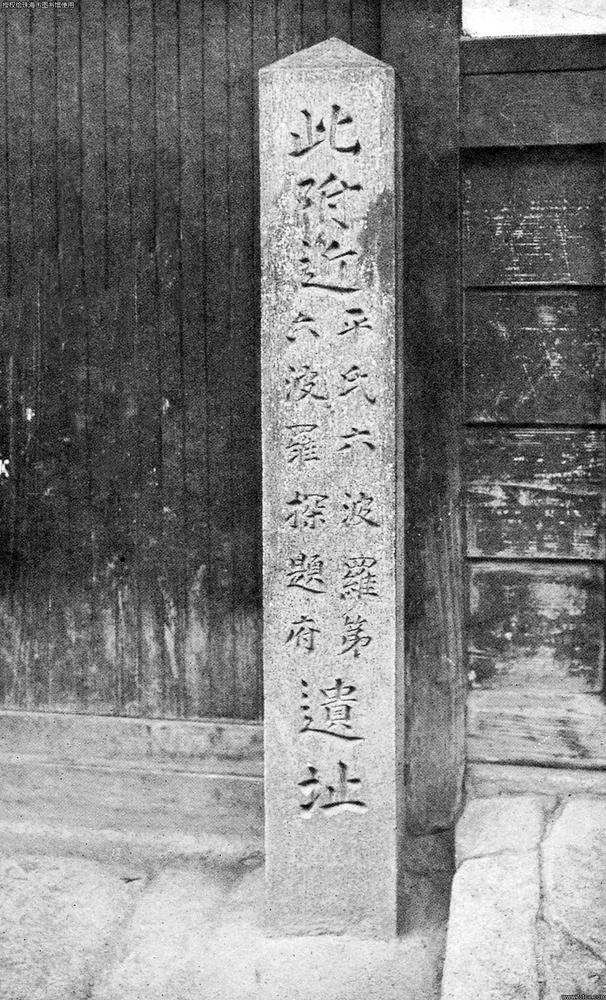 授权给珠海市图书馆使用
此附近
平氏六波羅第
六波羅探題府
遺址